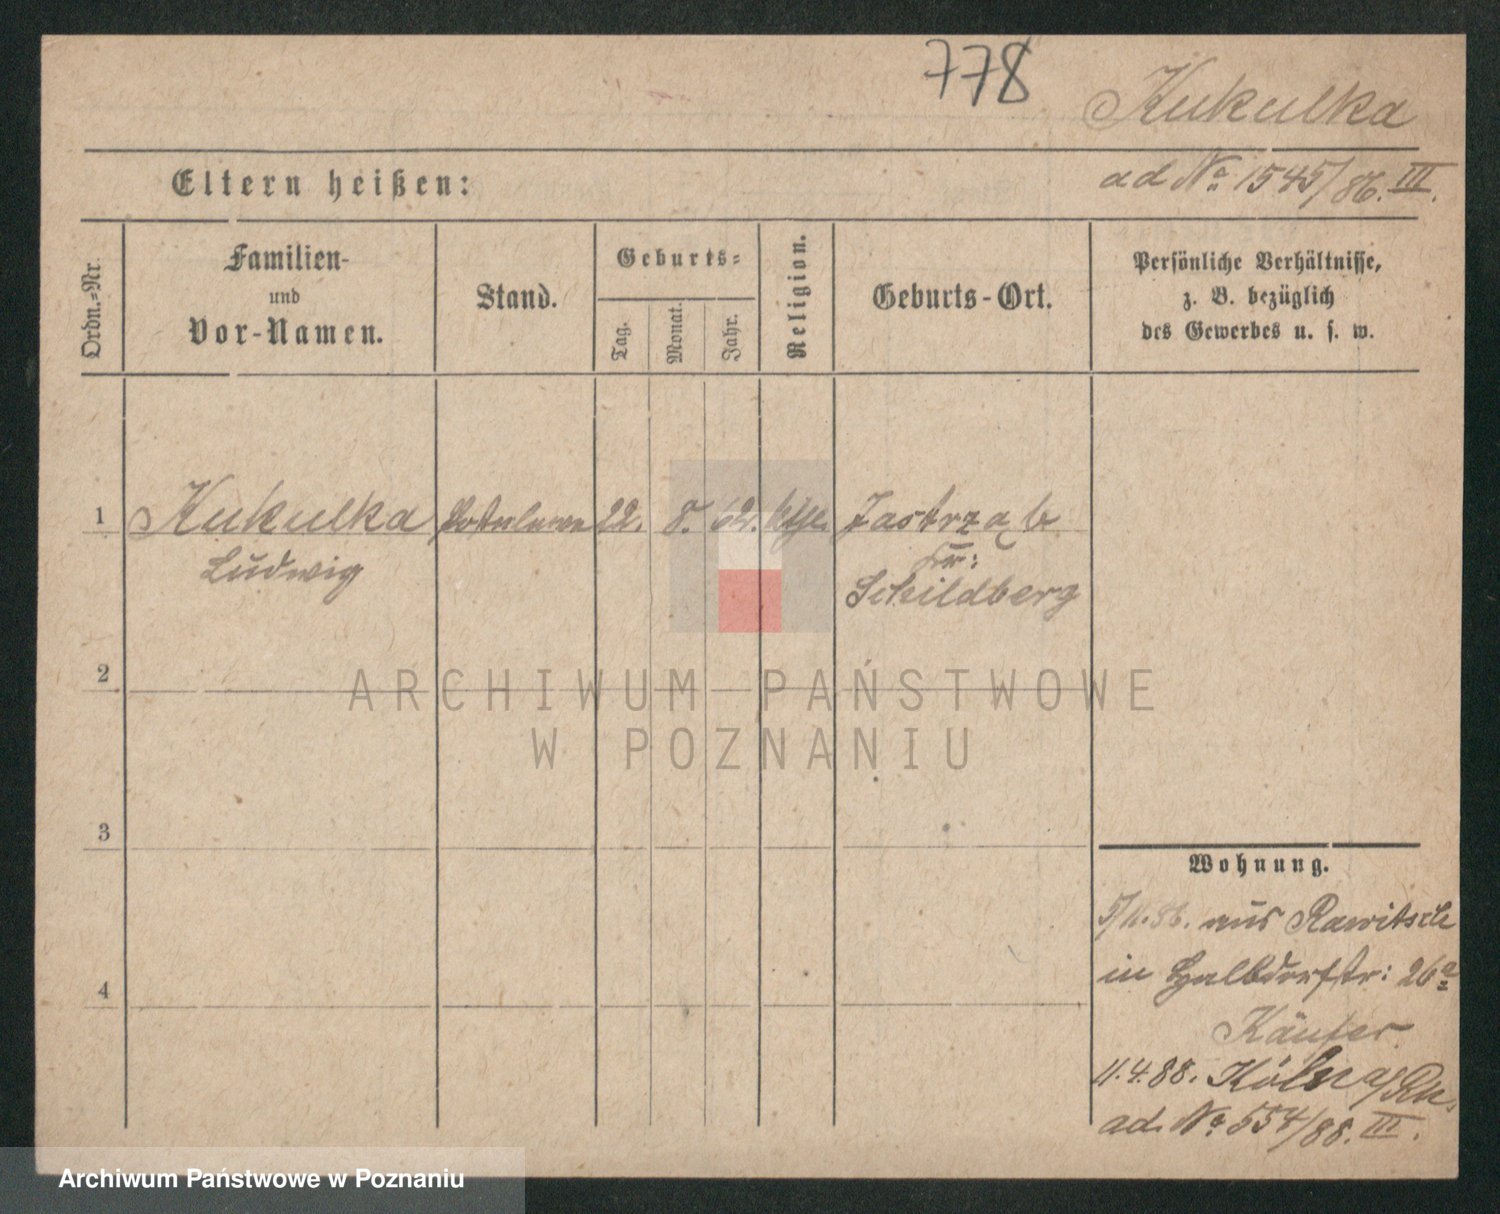 778
Kukulka
ad No. 1545/86. III.
Eltern heißen:
Ordn.=Nr.
Familien-
und
Vor-Namen.
Stand.
Geburts=
Tag.
Monat.
Jahr.
Religion.
Geburts-Ort.
Persönliche Verhältnisse,
z. B. bezüglich
des Gewerbes u. s. w.
1 Kukulka 22. 8. 62. Jastrząb
Ludwig
Kr:
Schildberg
2
3
4
Wohnung.
5/11.86. aus Rawitsch
in Halbdorfstr: 26a
Käufer
11.4.88. Köln a/Rh.
ad. No. 554/88. III.
ARCHIWUM PAŃSTWOWE
W POZNANIU
Archiwum Państwowe w Poznaniu